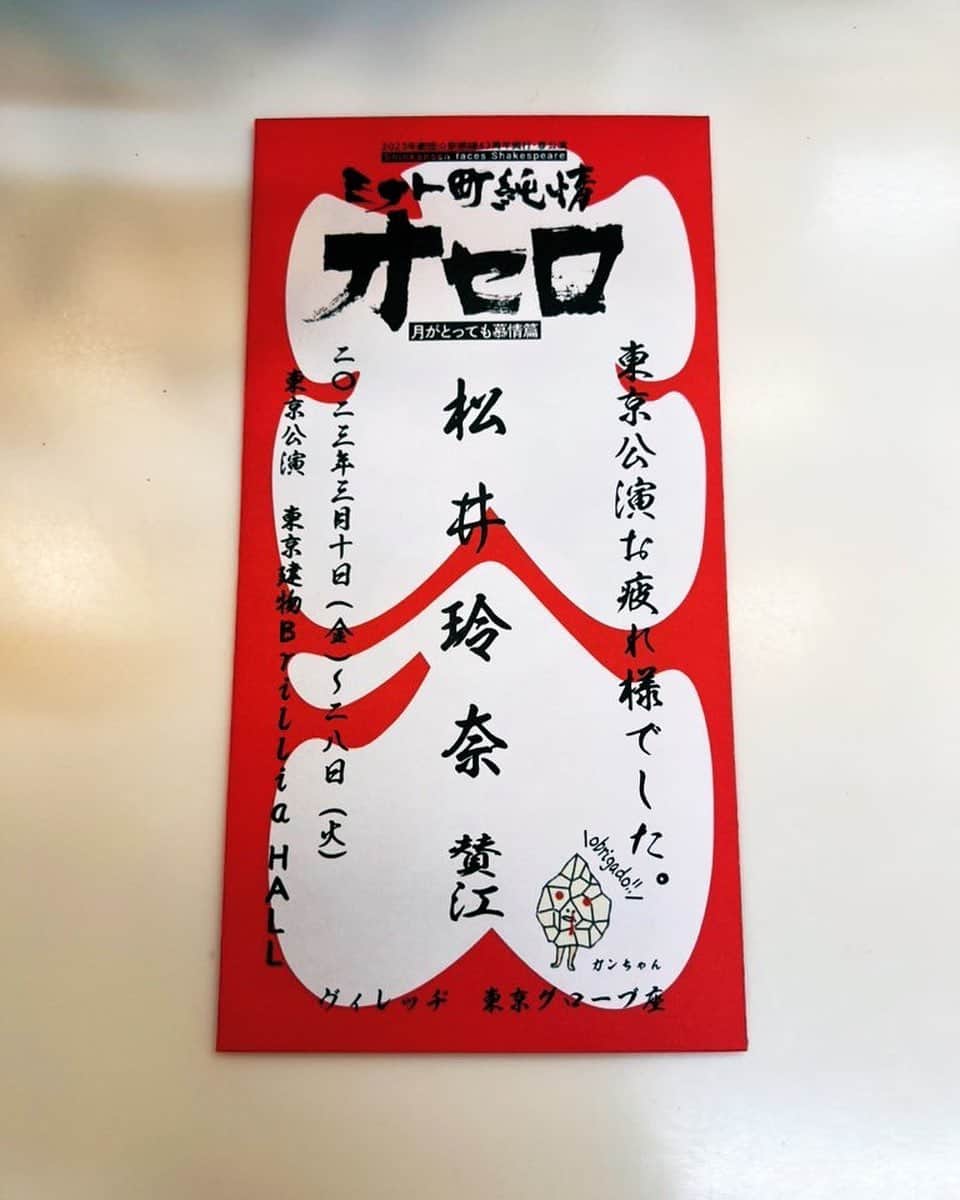 2023年劇団☆新感線43周年興行・春公演
Shinkansen faces Shakespeare
ミナト町純情
オセロ
月がとっても慕情篇
東京公演お疲れ様でした。
松井玲奈 賛江
二〇二三年三月十日(金)〜二八日(火)
東京公演 東京建物Brillia HALL
obrigado!!
ガンちゃん
ヴィレッヂ 東京グローブ座